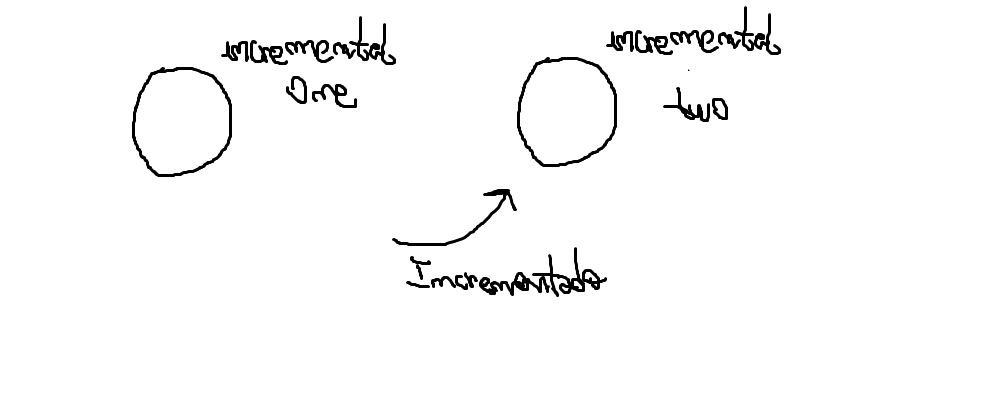 incremental
One
incremental
two
Incrementado